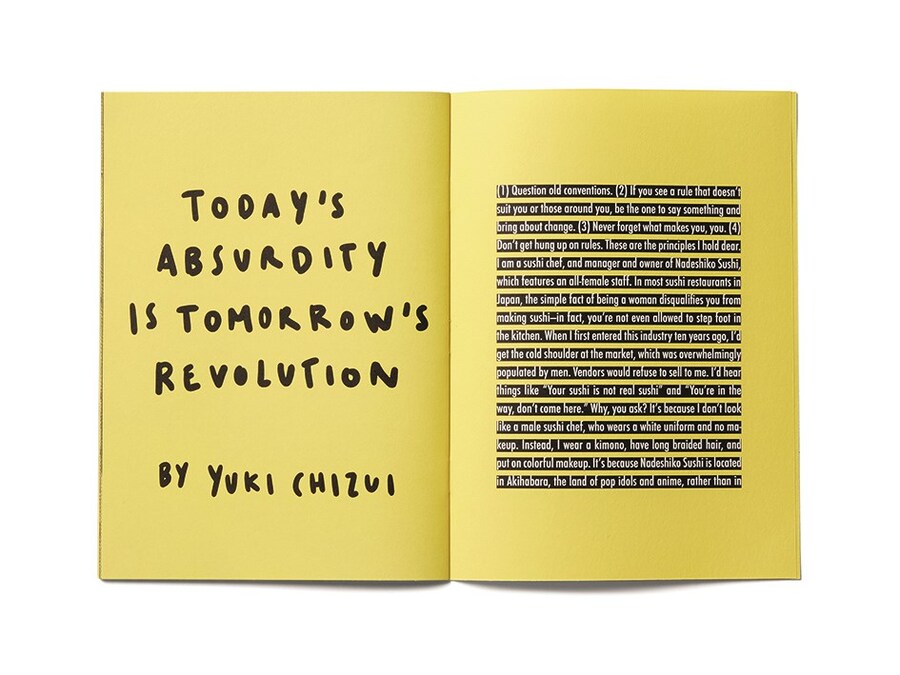 TODAY'S
ABSURDITY
IS TOMORROW'S
REVOLUTION
BY YUKI CHIZUI
(1) Question old conventions. (2) If you see a rule that doesn't
suit you or those around you, be the one to say something and
bring about change. (3) Never forget what makes you, you. (4)
Don't get hung up on rules. These are the principles I hold dear.
I am a sushi chef, and manager and owner of Nadeshiko Sushi,
which features an all-female staff. In most sushi restaurants in
Japan, the simple fact of being a woman disqualifies you from
making sushi—in fact, you're not even allowed to step foot in
the kitchen. When I first entered this industry ten years ago, I'd
get the cold shoulder at the market, which was overwhelmingly
populated by men. Vendors would refuse to sell to me. I'd hear
things like "Your sushi is not real sushi" and "You're in the
way, don't come here." Why, you ask? It's because I don't look
like a male sushi chef, who wears a white uniform and no ma-
keup. Instead, I wear a kimono, have long braided hair, and
put on colorful makeup. It's because Nadeshiko Sushi is located
in Akihabara, the land of pop idols and anime, rather than in